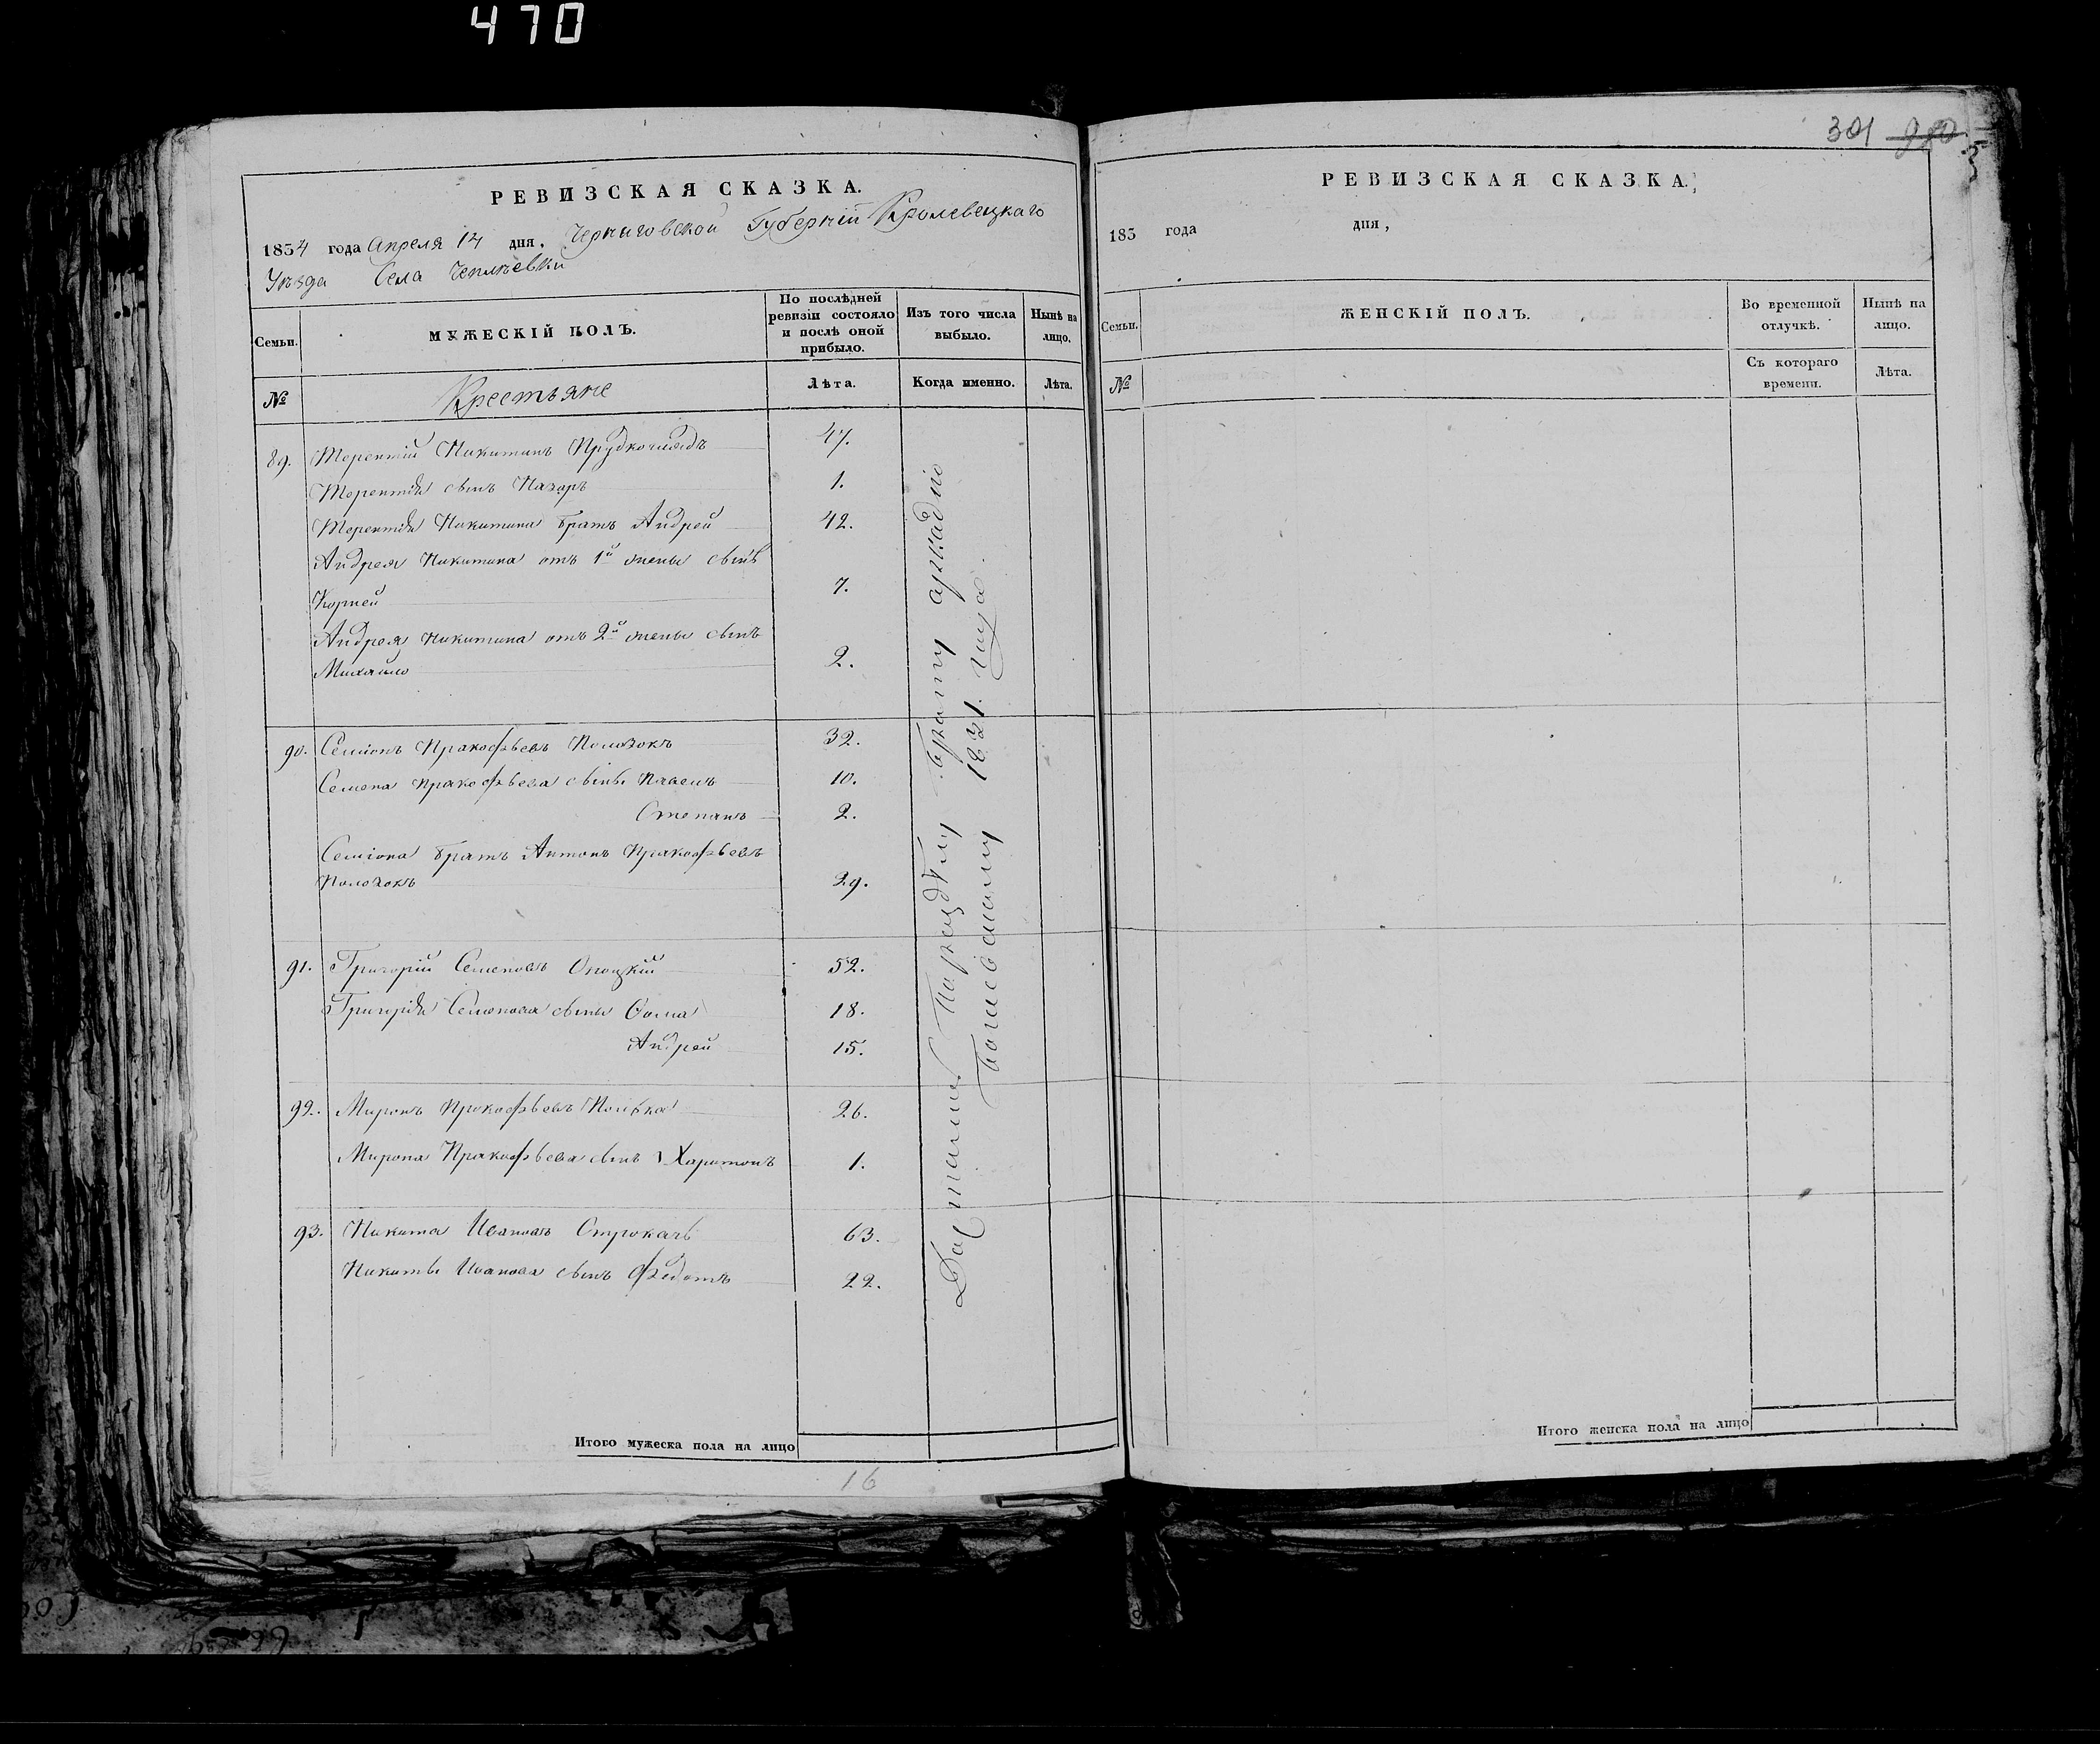 470
301
РЕВИЗСКАЯ СКАЗКА.
1854 года Апреля 14 дня, Черниговской Губерніи Кролевецкаго
Уѣзда Села Чеплѣевки
Семьи.
МУЖЕСКІЙ ПОЛЪ.
По послѣдней ревизіи состояло и послѣ оной прибыло.
Изъ того числа выбыло.
Нынѣ на лицо.
№
Крестьяне
Лѣта.
Когда именно.
Лѣта.
89. Терентій Никитинъ 47.
Терентія сынъ Назаръ 1.
Терентія Никитина братъ Андрей 42.
Андрея Никитина отъ 1й жены сынъ
Корней 7.
Андрея Никитина отъ 2й жены сынъ
Михайло 2.
90. Семіонъ Пракофьевъ Полозокъ 32.
Семена Пракофьева сыны Павелъ 10.
Степанъ 2.
Семіона братъ Антонъ Пракофьевъ
Полозокъ 29.
91. Григорій Семеновъ 52.
Григорія Семенова сыны Фома 18.
Андрей 15.
92. Миронъ Прокофьевъ 26.
Мирона Пракофьева сынъ Харитонъ 1.
93. Никита Ивановъ Строкачь 63.
Никиты Иванова сынъ Федотъ 22.
Достались по раздѣлу брату Аркадію
1851. года
Итого мужеска пола на лицо
16
РЕВИЗСКАЯ СКАЗКА.
185 года дня,
Семьи.
ЖЕНСКІЙ ПОЛЪ.
Во временной отлучкѣ.
Нынѣ на лицо.
№
Съ котораго времени.
Лѣта.
Итого женска пола на лицо